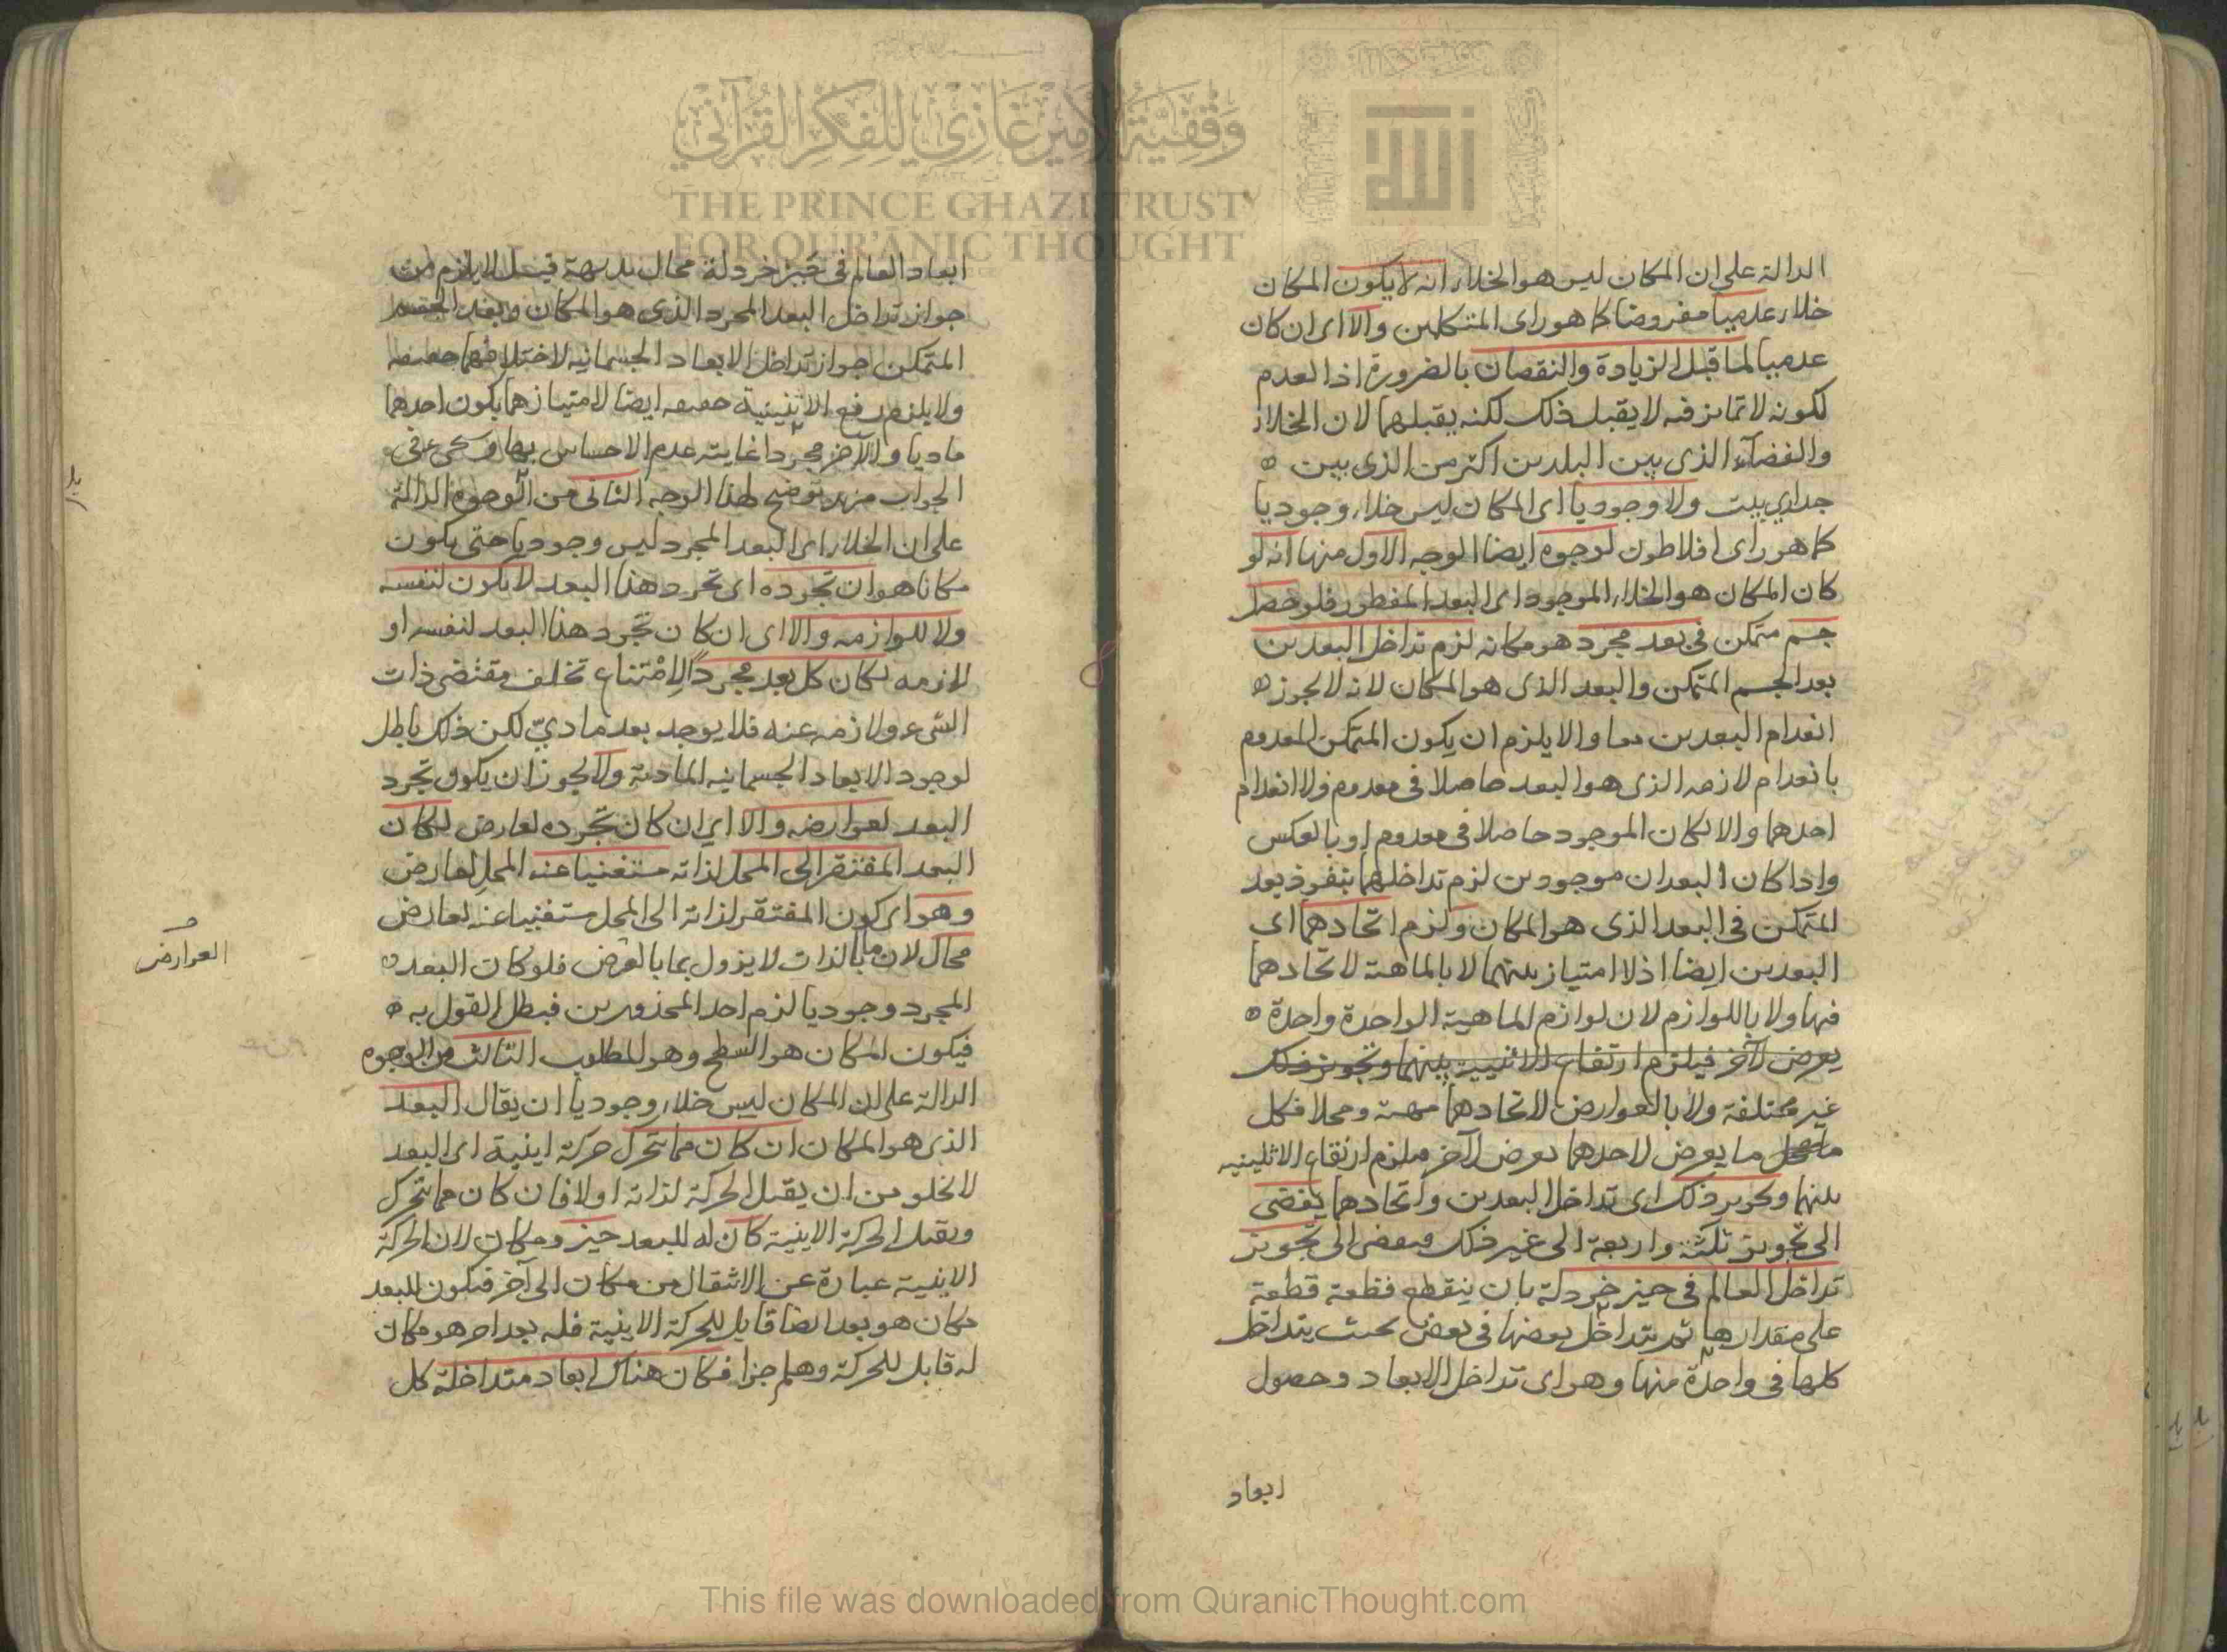 الدالة على ان المكان ليس هو الخلاء انه لا يكون المكان
خلاء عدميا مفروضا كما هو راى المتكلمين والا اى ان كان
عدميا لما قبل الزيادة والنقصان بالضرورة اذ العدم
لكونه لا تمايز فيه لا يقبل ذلك لكنه يقبلهما لان الخلاء
والفضاء الذى بين البلدين اكثر من الذى بين
جدارى بيت ولا وجوديا اى المكان ليس خلاء وجوديا
كما هو راى افلاطون لوجوه ايضا الوجه الاول منها انه لو
كان المكان هو الخلاء الموجود اى البعد المفطور فلو حصل
جسم متمكن فى بعد مجرد هو مكانه لزم تداخل البعدين
بعد الجسم المتمكن والبعد الذى هو المكان لانه لا يجوز
انعدام البعدين معا والا يلزم ان يكون المتمكن المعدوم
بانعدام لازمه الذى هو البعد حاصلا فى معدوم ولا انعدام
احدهما والا لكان الموجود حاصلا فى معدوم او بالعكس
واذا كان البعدان موجودين لزم تداخلهما بنفوذ بعد
المتمكن فى البعد الذى هو المكان ولزم اتحادهما اى
البعدين ايضا اذ لا امتياز بينهما لا بالماهية لاتحادهما
فيها ولا باللوازم لان لوازم الماهية الواحدة واحدة
يعرض لآخر فيلزم ارتفاع الاثنينية بينهما وتجويز ذلك
غير مختلفة ولا بالعوارض لاتحادهما مهية ومحلا فكل
ما يعرض لاحدهما يعرض لآخر فيلزم ارتفاع الاثنينيه
بينهما وتجويز ذلك اى تداخل البعدين واتحادهما يفضى
الى تجويز ثلثة واربعة الى غير ذلك ويفضى الى تجويز
تداخل العالم فى حيز خردلة بان ينقطع قطعة قطعة
على مقدارها ثم يتداخل بعضها فى بعض بحيث يتداخل
كلها فى واحدة منها وهو اى تداخل الابعاد وحصول
ابعاد
ابعاد العالم فى حيز خردلة محال بديهة قيل لا يلزم من
جواز تداخل البعد المجرد الذى هو المكان وبعد الجسم
المتمكن جواز تداخل الابعاد الجسمانيه لاختلافهما حقيقه
ولا يلزم رفع الاثنينية حقيقه ايضا لامتيازهما بكون احدهما
ماديا والآخر مجردا غايته عدم الاحساس بها وسيجىء فى
الجواب مزيد توضيح لهذا الوجه الثانى من الوجوه الدالة
على ان الخلاء اى البعد المجرد ليس وجوديا حتى يكون
مكانا هو ان تجرده اى تجرد هذا البعد لا يكون لنفسه
ولا للوازمه والا اى ان كان تجرد هذا البعد لنفسه او
لازمه لكان كل بعد مجردا لامتناع تخلف مقتضى ذات
الشىء ولازمه عنه فلا يوجد بعد مادى لكن ذلك باطل
لوجود الابعاد الجسمانيه المادية ولا يجوز ان يكون تجرد
البعد لعوارضه والا اى ان كان تجرده لعارض لكان
البعد المفتقر الى المحل لذاته مستغنيا عن المحل لعارض
وهو اى كون المفتقر لذاته الى المحل مستغنيا عنه لعارض
محال لان ما بالذات لا يزول بما بالعرض فلو كان البعد
العوارض
المجرد وجوديا لزم احد المحذورين فبطل القول به
فيكون المكان هو السطح وهو المطلوب الثالث من الوجوه
الدالة على ان المكان ليس خلاء وجوديا ان يقال البعد
الذى هو المكان ان كان مما يتحرك حركة اينية اى البعد
لا يخلو من ان يقبل الحركة لذاته او لا فان كان مما يتحرك
ويقبل الحركة الاينية كان له للبعد حيز ومكان لان الحركة
الاينية عبارة عن الانتقال من مكان الى آخر فيكون للبعد
مكان هو بعد ايضا قابل للحركة الاينية فله بعد اخر هو مكان
له قابل للحركة وهلم جرا فكان هناك ابعاد متداخلة كل
وقفية الأمير غازي للفكر القرآني
THE PRINCE GHAZI TRUST
FOR QUR'ĀNIC THOUGHT
الله
This file was downloaded from QuranicThought.com